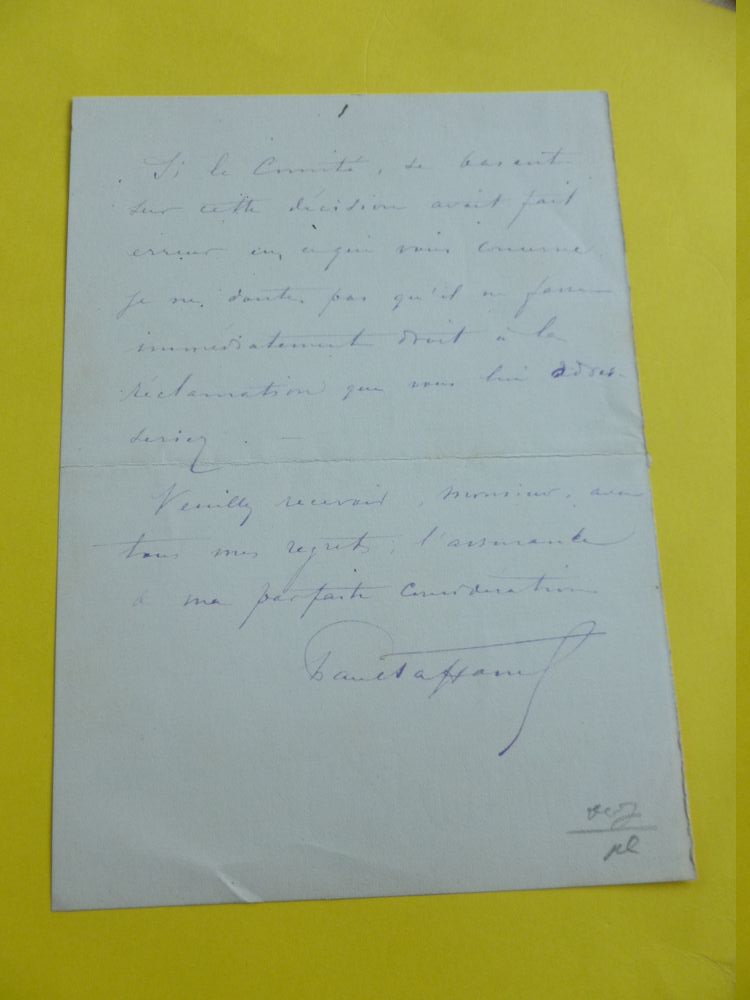 Si le Comité, se basant
sur cette décision avait fait
erreur en ce qui vous concerne
je ne doute pas qu'il ne fasse
immédiatement droit à la
réclamation que vous lui adres-
seriez. —
Veuillez recevoir, Monsieur, avec
tous mes regrets, l'assurance
de ma parfaite considération
Paul Taffanel